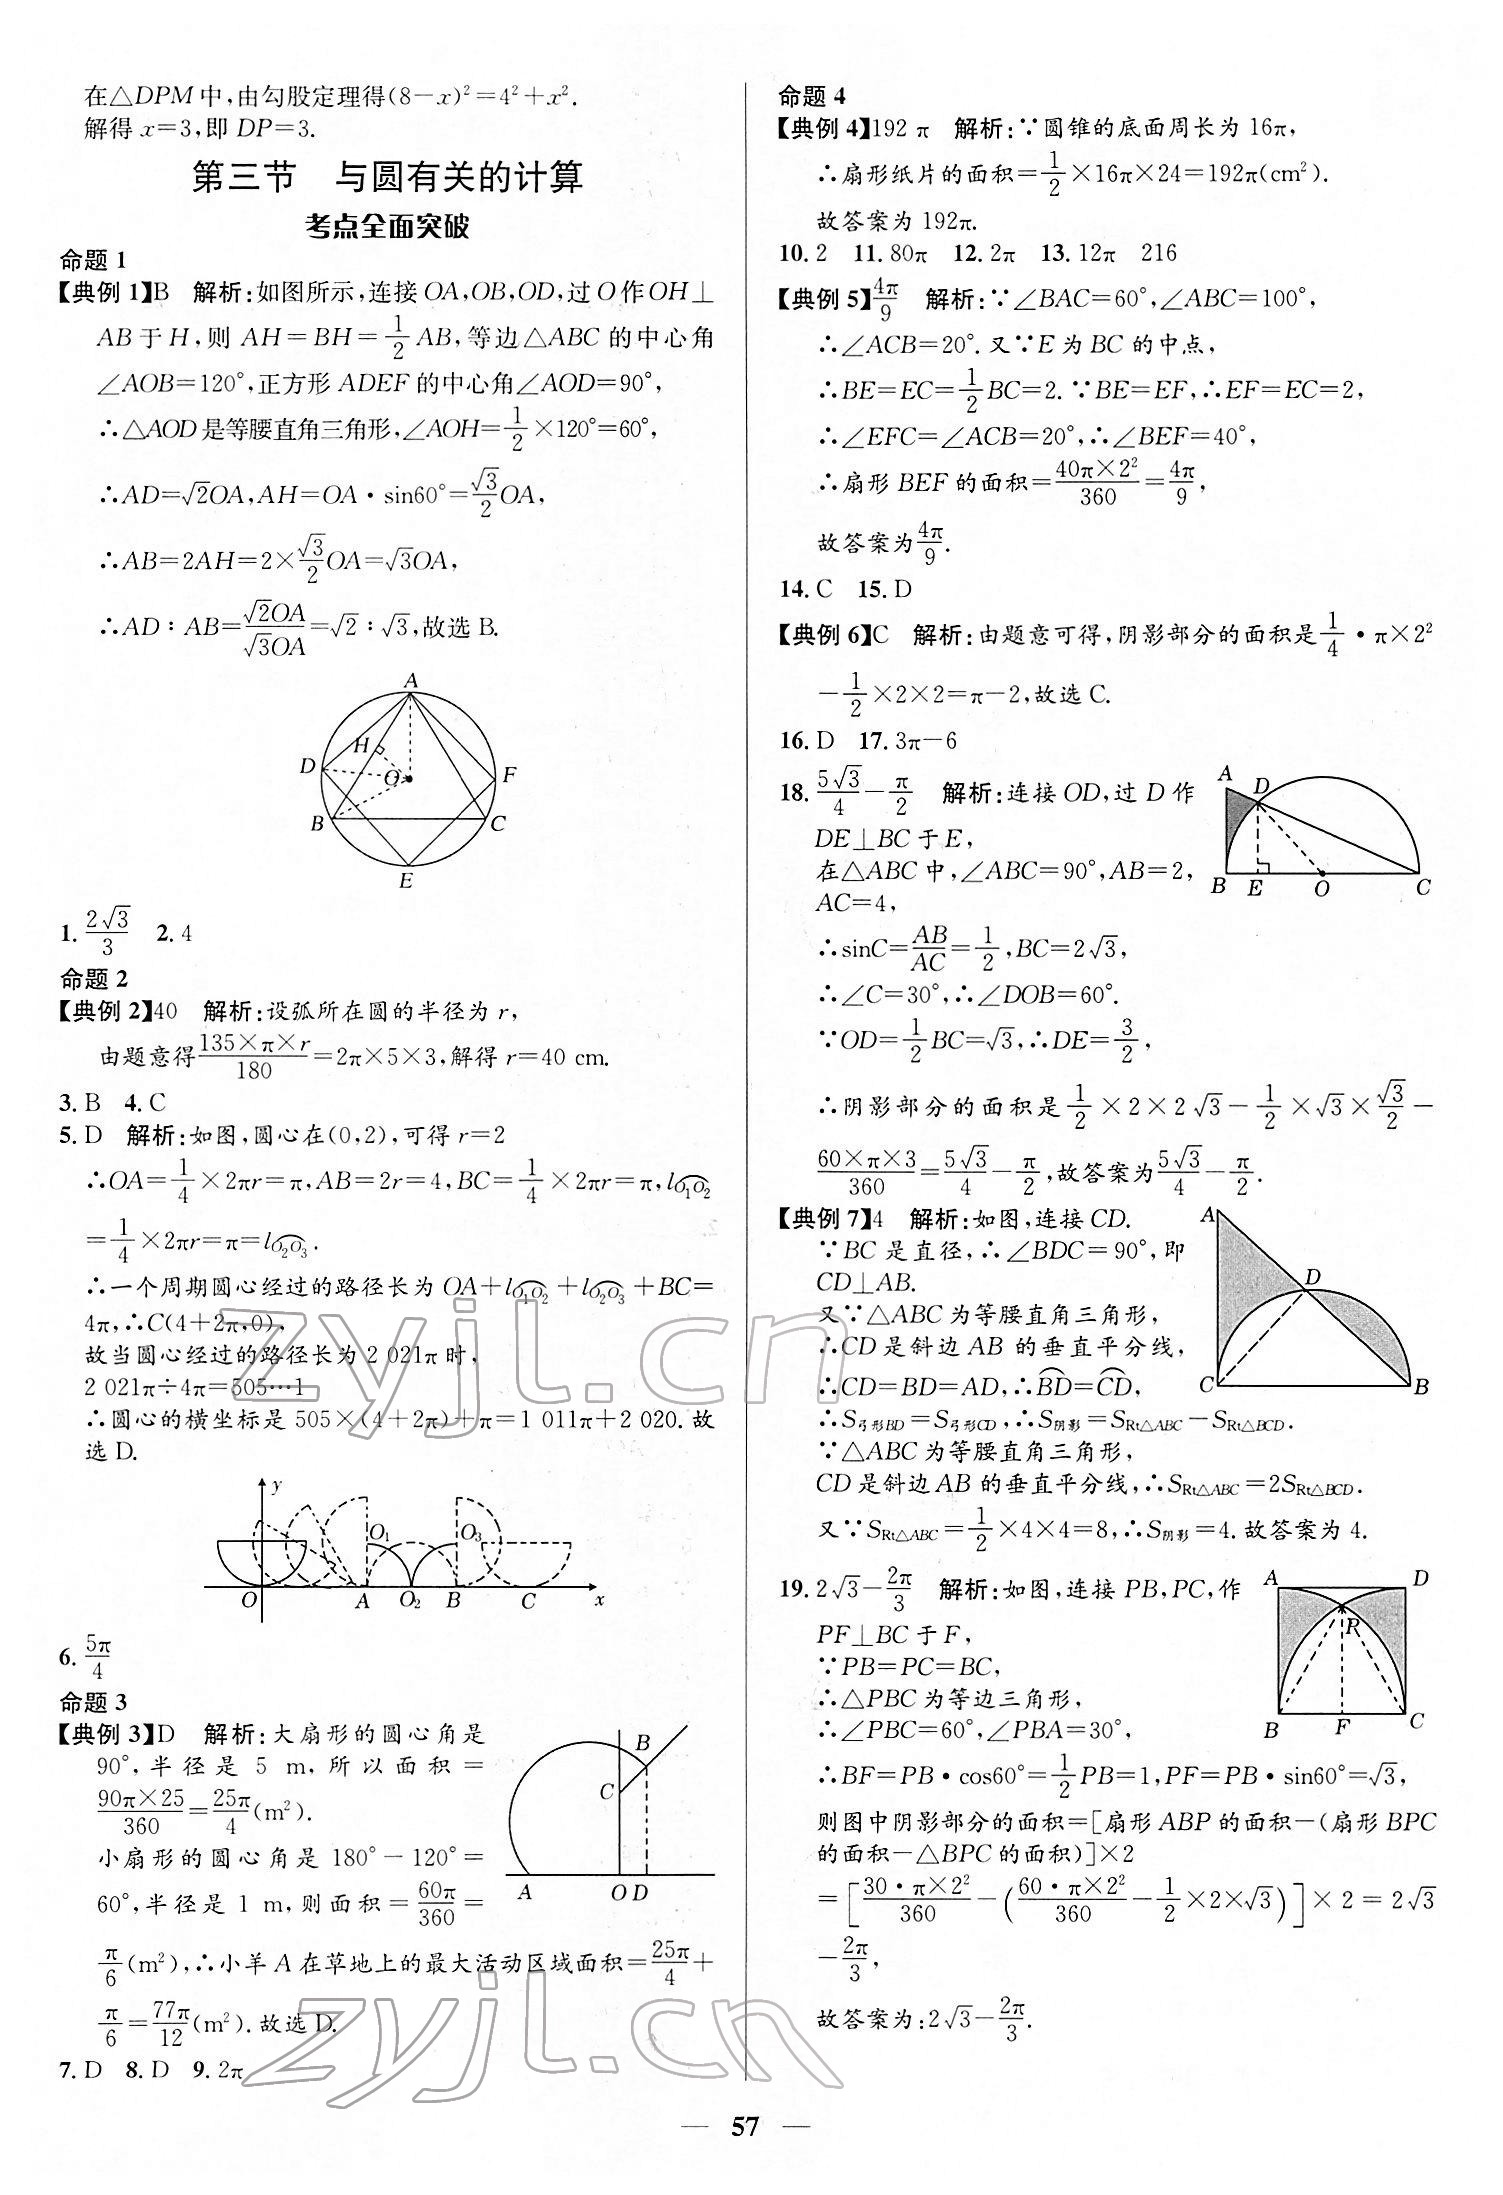 在△DPM中,由勾股定理得(8-x)²=4²+x².
解得 x=3,即 DP=3.
第三节 与圆有关的计算
考点全面突破
命题 1
【典例 1】B 解析:如图所示,连接OA,OB,OD,过O作OH⊥
AB于H,则 AH=BH=\frac{1}{2}AB,等边△ABC的中心角
∠AOB=120°,正方形 ADEF的中心角∠AOD=90°,
∴△AOD是等腰直角三角形,∠AOH=\frac{1}{2}×120°=60°,
∴AD=√2OA,AH=OA·sin60°=\frac{√3}{2}OA,
∴AB=2AH=2×\frac{√3}{2}OA=√3OA,
∴AD∶AB=\frac{√2OA}{√3OA}=√2∶√3,故选 B.
A
H
D
O
F
B
C
E
1.\frac{2√3}{3} 2.4
命题 2
【典例 2】40 解析:设弧所在圆的半径为 r,
由题意得\frac{135×π×r}{180}=2π×5×3,解得 r=40 cm.
3.B 4.C
5.D 解析:如图,圆心在(0,2),可得 r=2
∴OA=\frac{1}{4}×2πr=π,AB=2r=4,BC=\frac{1}{4}×2πr=π,l_{\overset{⌒}{O₁O₂}}
=\frac{1}{4}×2πr=π=l_{\overset{⌒}{O₂O₃}}.
∴一个周期圆心经过的路径长为 OA+l_{\overset{⌒}{O₁O₂}}+l_{\overset{⌒}{O₂O₃}}+BC=
4π,∴C(4+2π,0),
故当圆心经过的路径长为 2 021π时,
2 021π÷4π=505…1
∴圆心的横坐标是 505×(4+2π)+π=1 011π+2 020.故
选 D.
y
O₁ O₃
O A O₂ B C x
6.\frac{5π}{4}
命题 3
【典例 3】D 解析:大扇形的圆心角是
90°,半径是 5 m,所以面积=
\frac{90π×25}{360}=\frac{25π}{4}(m²).
小扇形的圆心角是 180°-120°=
60°,半径是 1 m,则面积=\frac{60π}{360}=
\frac{π}{6}(m²),∴小羊A在草地上的最大活动区域面积=\frac{25π}{4}+
\frac{π}{6}=\frac{77π}{12}(m²).故选 D.
B
C
A O D
7.D 8.D 9.2π
命题 4
【典例 4】192 π 解析:∵圆锥的底面周长为 16π,
∴扇形纸片的面积=\frac{1}{2}×16π×24=192π(cm²).
故答案为 192π.
10.2 11.80π 12.2π 13.12π 216
【典例 5】\frac{4π}{9} 解析:∵∠BAC=60°,∠ABC=100°,
∴∠ACB=20°.又∵E为BC的中点,
∴BE=EC=\frac{1}{2}BC=2.∵BE=EF,∴EF=EC=2,
∴∠EFC=∠ACB=20°,∴∠BEF=40°,
∴扇形BEF的面积=\frac{40π×2²}{360}=\frac{4π}{9},
故答案为\frac{4π}{9}.
14.C 15.D
【典例 6】C 解析:由题意可得,阴影部分的面积是\frac{1}{4}·π×2²
-\frac{1}{2}×2×2=π-2,故选 C.
16.D 17.3π-6
18.\frac{5√3}{4}-\frac{π}{2} 解析:连接OD,过D作
DE⊥BC于E,
在△ABC中,∠ABC=90°,AB=2,
AC=4,
∴sinC=\frac{AB}{AC}=\frac{1}{2},BC=2√3,
∴∠C=30°,∴∠DOB=60°.
∵OD=\frac{1}{2}BC=√3,∴DE=\frac{3}{2},
∴阴影部分的面积是\frac{1}{2}×2×2√3-\frac{1}{2}×√3×\frac{√3}{2}-
\frac{60×π×3}{360}=\frac{5√3}{4}-\frac{π}{2},故答案为\frac{5√3}{4}-\frac{π}{2}.
A D
B E O C
【典例 7】4 解析:如图,连接CD.
∵BC是直径,∴∠BDC=90°,即
CD⊥AB.
又∵△ABC为等腰直角三角形,
∴CD是斜边AB的垂直平分线,
∴CD=BD=AD,∴\overset{⌒}{BD}=\overset{⌒}{CD},
∴S弓形BD=S弓形CD,∴S阴影=S_{Rt△ABC}-S_{Rt△BCD}.
∵△ABC为等腰直角三角形,
CD是斜边AB的垂直平分线,∴S_{Rt△ABC}=2S_{Rt△BCD}.
又∵S_{Rt△ABC}=\frac{1}{2}×4×4=8,∴S阴影=4.故答案为 4.
A
D
C B
19.2√3-\frac{2π}{3} 解析:如图,连接PB,PC,作
PF⊥BC于F,
∵PB=PC=BC,
∴△PBC为等边三角形,
∴∠PBC=60°,∠PBA=30°,
∴BF=PB·cos60°=\frac{1}{2}PB=1,PF=PB·sin60°=√3,
则图中阴影部分的面积=[扇形ABP的面积-(扇形BPC
的面积-△BPC的面积)]×2
=[\frac{30·π×2²}{360}-(\frac{60·π×2²}{360}-\frac{1}{2}×2×√3)]×2=2√3
-\frac{2π}{3},
故答案为:2√3-\frac{2π}{3}.
A D
P
B F C
zyjl.cn
zyjl.cn
— 57 —